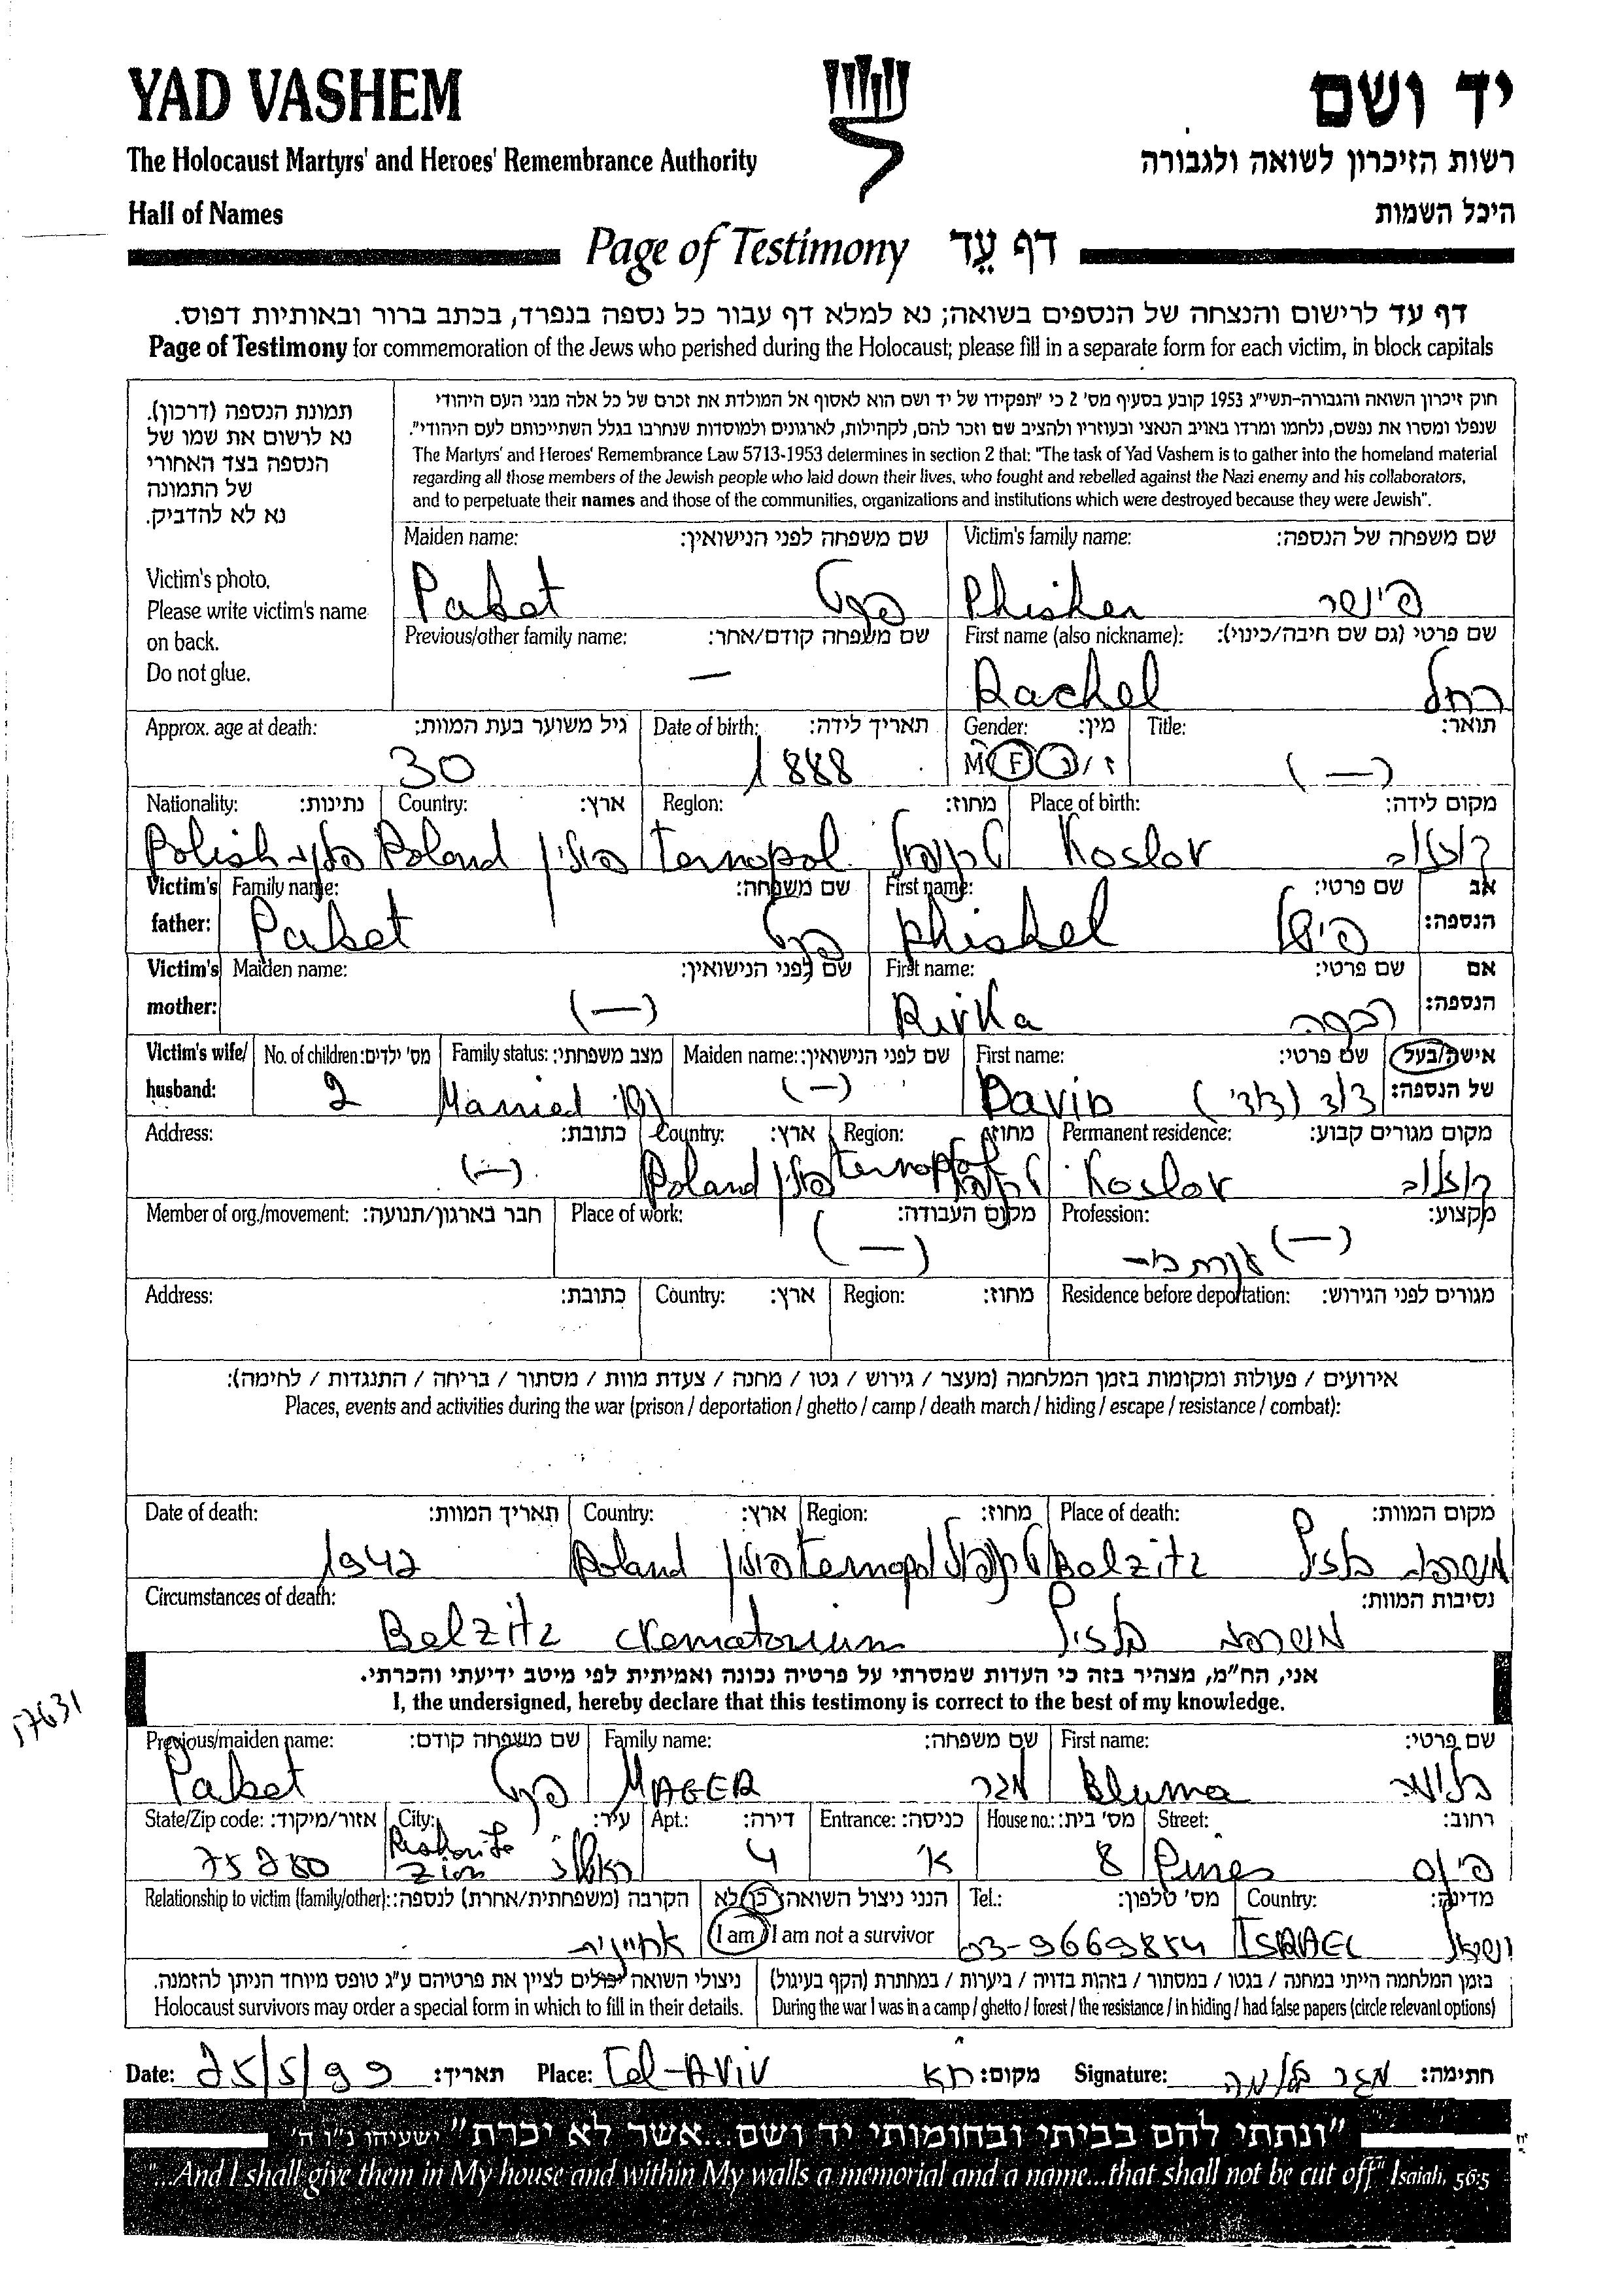 YAD VASHEM יד ושם
The Holocaust Martyrs' and Heroes' Remembrance Authority רשות הזיכרון לשואה ולגבורה
Hall of Names היכל השמות
Page of Testimony דף עֵד
דף עד לרישום והנצחה של הנספים בשואה; נא למלא דף עבור כל נספה בנפרד, בכתב ברור ובאותיות דפוס.
Page of Testimony for commemoration of the Jews who perished during the Holocaust; please fill in a separate form for each victim, in block capitals
תמונת הנספה (דרכון).
נא לרשום את שמו של
הנספה בצד האחורי
של התמונה
נא לא להדביק.
Victim's photo.
Please write victim's name
on back.
Do not glue.
חוק זיכרון השואה והגבורה-תשי"ג 1953 קובע בסעיף מס' 2 כי "תפקידו של יד ושם הוא לאסוף אל המולדת את זכרם של כל אלה מבני העם היהודי
שנפלו ומסרו את נפשם, נלחמו ומרדו באויב הנאצי ובעוזריו ולהציב שם וזכר להם, לקהילות, לארגונים ולמוסדות שנחרבו בגלל השתייכותם לעם היהודי".
The Martyrs' and Heroes' Remembrance Law 5713-1953 determines in section 2 that: "The task of Yad Vashem is to gather into the homeland material
regarding all those members of the Jewish people who laid down their lives, who fought and rebelled against the Nazi enemy and his collaborators,
and to perpetuate their names and those of the communities, organizations and institutions which were destroyed because they were Jewish".
Maiden name: שם משפחה לפני הנישואין: Victim's family name: שם משפחה של הנספה:
Pabet Phisher פישר
Previous/other family name: שם משפחה קודם/אחר: First name (also nickname): שם פרטי (גם שם חיבה/כינוי):
— Rachel רחל
Approx. age at death: גיל משוער בעת המוות: Date of birth: תאריך לידה: Gender: מין: Title: תואר:
30 1888 M/F ז/נ (—)
Nationality: נתינות: Country: ארץ: Region: מחוז: Place of birth: מקום לידה:
Polish Poland פולין ternopol טרנופול Koslov קוזלוב
Victim's father: Family name: שם משפחה: First name: שם פרטי: אב הנספה:
Pabet Phishel פישל
Victim's mother: Maiden name: שם לפני הנישואין: First name: שם פרטי: אם הנספה:
(—) Rivka רבקה
Victim's wife/ husband: No. of children: מס' ילדים: Family status: מצב משפחתי: Maiden name: שם לפני הנישואין: First name: שם פרטי: אישה/בעל של הנספה:
2 Married נשוי (—) David דוד
Address: כתובת: Country: ארץ: Region: מחוז: Permanent residence: מקום מגורים קבוע:
(—) Poland פולין ternopol טרנופול Koslov קוזלוב
Member of org./movement: חבר בארגון/תנועה: Place of work: מקום העבודה: Profession: מקצוע:
(—) (—) עקרת בית
Address: כתובת: Country: ארץ: Region: מחוז: Residence before deportation: מגורים לפני הגירוש:
אירועים / פעולות ומקומות בזמן המלחמה (מעצר / גירוש / גטו / מחנה / צעדת מוות / מסתור / בריחה / התנגדות / לחימה):
Places, events and activities during the war (prison / deportation / ghetto / camp / death march / hiding / escape / resistance / combat):
Date of death: תאריך המוות: Country: ארץ: Region: מחוז: Place of death: מקום המוות:
1942 Poland פולין ternopol טרנופול Belzitz
Circumstances of death: נסיבות המוות:
Belzitz crematorium
אני, הח"מ, מצהיר בזה כי העדות שמסרתי על פרטיה נכונה ואמיתית לפי מיטב ידיעתי והכרתי.
I, the undersigned, hereby declare that this testimony is correct to the best of my knowledge.
17631
Previous/maiden name: שם משפחה קודם: Family name: שם משפחה: First name: שם פרטי:
Pabet MAGER מגר Bluma בלומה
State/Zip code: אזור/מיקוד: City: עיר: Apt.: דירה: Entrance: כניסה: House no.: מס' בית: Street: רחוב:
75280 Rishon le Zion 4 א' 8 Pines פינס
Relationship to victim (family/other): הקרבה (משפחתית/אחרת) לנספה: הנני ניצול השואה: כן/לא Tel.: מס' טלפון: Country: מדינה:
אחיינית I am / I am not a survivor 03-9669854 ISRAEL ישראל
ניצולי השואה יכולים לציין את פרטיהם ע"ג טופס מיוחד הניתן להזמנה. בזמן המלחמה הייתי במחנה / בגטו / במסתור / בזהות בדויה / ביערות / במחתרת (הקף בעיגול)
Holocaust survivors may order a special form in which to fill in their details. During the war I was in a camp / ghetto / forest / the resistance / in hiding / had false papers (circle relevant options)
Date: 25/5/99 תאריך: Place: Tel-Aviv ת"א מקום: Signature: מגר בלומה חתימה:
"ונתתי להם בביתי ובחומותי יד ושם...אשר לא יכרת" ישעיהו נ"ו ה'
"...And I shall give them in My house and within My walls a memorial and a name...that shall not be cut off" Isaiah, 56:5